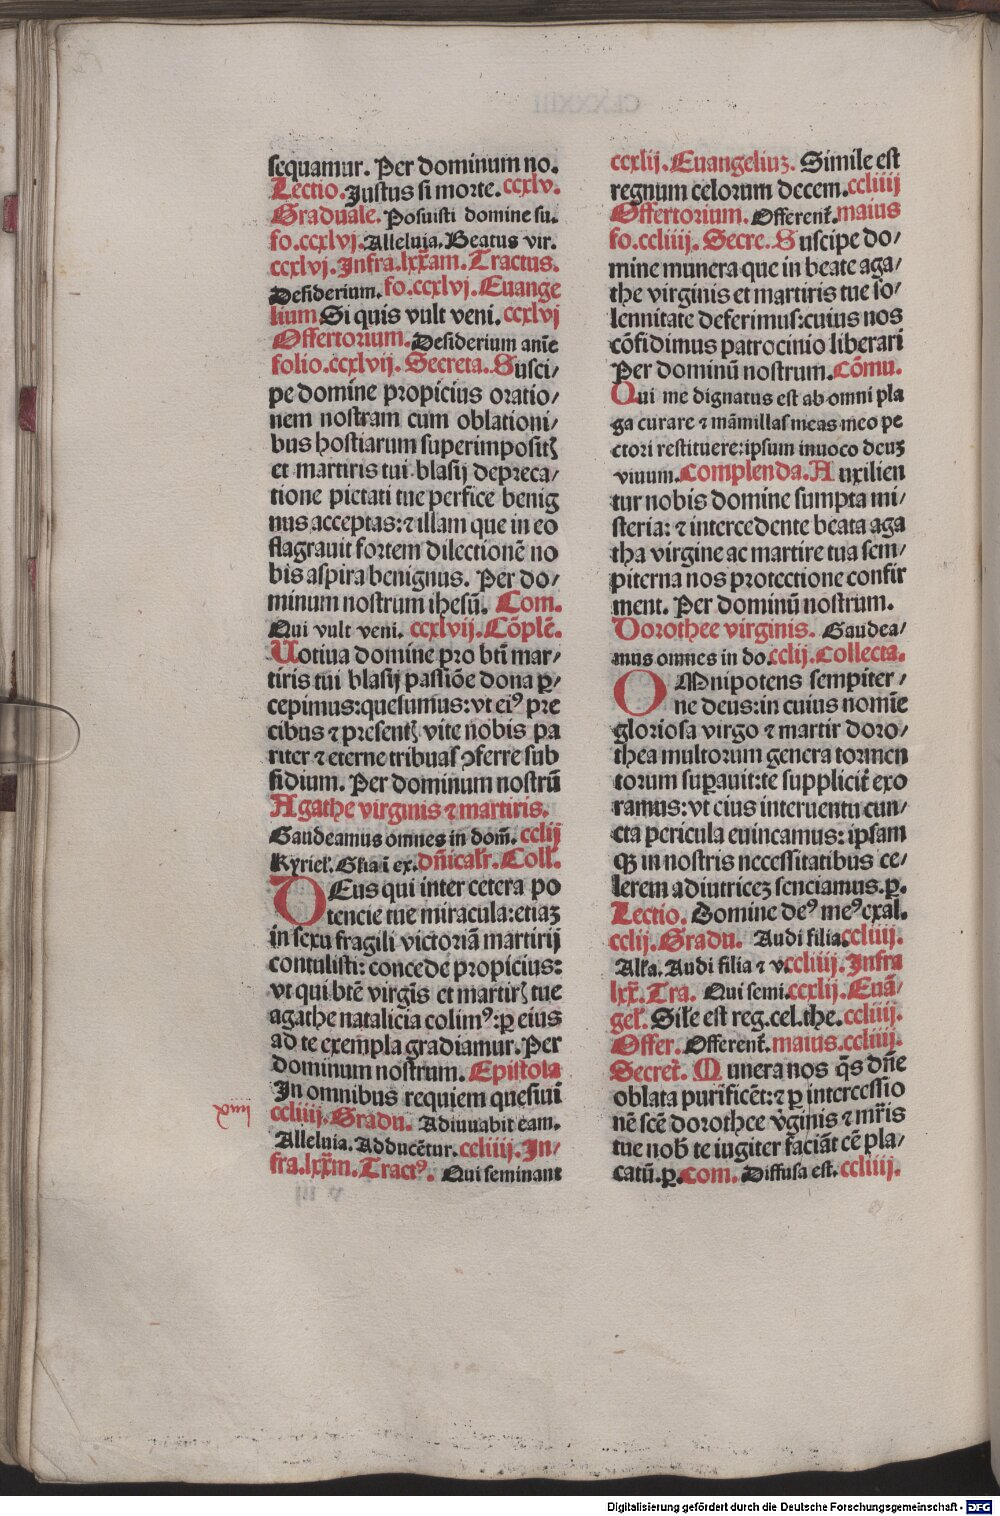 sequamur. Per dominum no.
Lectio. Justus si morte. ccxlv.
Graduale. Posuisti domine su.
fo.ccxlvj. Alleluia. Beatus vir.
ccxlvj. Infra.lxx̄am. Tractus.
Desiderium. fo.ccxlvj. Euange
lium Si quis vult veni. ccxlvj
Offertorium. Desiderium anīe
folio.ccxlvij. Secreta. Susci/
pe domine propicius oratio/
nem nostram cum oblationi/
bus hostiarum superimpositꝭ
et martiris tui blasij depreca/
tione pietati tue perfice benig
nus acceptas: ⁊ illam que in eo
flagrauit fortem dilectionē no
bis aspira benignus. Per do/
minum nostrum ihesū. Com.
Qui vult veni. ccxlvij. Cōplē.
Uotiua domine pro bt̄i mar/
tiris tui blasij passiōe dona ꝑ/
cepimus: quesumus: vt eiꝰ pre
cibus ⁊ presentꝭ vite nobis pa
riter ⁊ eterne tribuas ꝯferre sub
sidium. Per dominum nostrū
Agathe virginis ⁊ martiris.
Gaudeamus omnes in dom̄. cclij
Kyriel. Gl̄ia ī ex. dn̄icalr̄. Coll.
DEus qui inter cetera po
tencie tue miracula: etiaꝫ
in sexu fragili victoriā martirij
contulisti: concede propicius:
vt qui btē virgīs et martirꝭ tue
agathe natalicia colimꝰ: ꝑ eius
ad te exempla gradiamur. Per
dominum nostrum. Epistola
In omnibus requiem quesiui
ccliiij. Gradu. Adiuuabit eam.
Alleluia. Adducētur. ccliiij. In/
fra.lxx̄m. Tractꝰ. Qui seminant
ccxlij. Euangeliuꝫ. Simile est
regnum celorum decem. ccliiij
Offertorium. Offerent̄. maius
fo.ccliiij. Secre. Suscipe do/
mine munera que in beate aga/
the virginis et martiris tue so/
lennitate deferimus: cuius nos
cōfidimus patrocinio liberari
Per dominū nostrum. Cōmu.
Qui me dignatus est ab omni pla
ga curare ⁊ māmillas meas meo pe
ctori restituere: ipsum inuoco deuꝫ
viuum. Complenda. Auxilien
tur nobis domine sumpta mi/
steria: ⁊ intercedente beata aga
tha virgine ac martire tua sem/
piterna nos protectione confir
ment. Per dominū nostrum.
Dorothee virginis. Gaudea/
mus omnes in do. cclij. Collecta.
OMnipotens sempiter/
ne deus: in cuius nomīe
gloriosa virgo ⁊ martir doro/
thea multorum genera tormen
torum suꝑauit: te supplicit̄ exo
ramus: vt eius interuentu cun/
cta pericula euincamus: ipsam
ꝙ in nostris necessitatibus ce/
lerem adiutriceꝫ senciamus. ꝑ.
Lectio. Domine deꝰ meꝰ exal.
cclij. Gradu. Audi filia. ccliiij.
Alla. Audi filia ⁊ v. ccliiij. Infra
lxx̄. Tra. Qui semi. ccxlij. Euā/
gel. Sile est reg. cel. the. ccliiij.
Offer. Offerent̄. maius. ccliiij.
Secret̄. Munera nos q̄s dn̄e
oblata purificēt: ⁊ ꝑ intercessio
nē scē dorothee v̄ginis ⁊ mr̄is
tue nob̄ te iugiter faciāt cē pla/
catū. ꝑ. Com. Diffusa est. ccliiij.
Digitalisierung gefördert durch die Deutsche Forschungsgemeinschaft - DFG